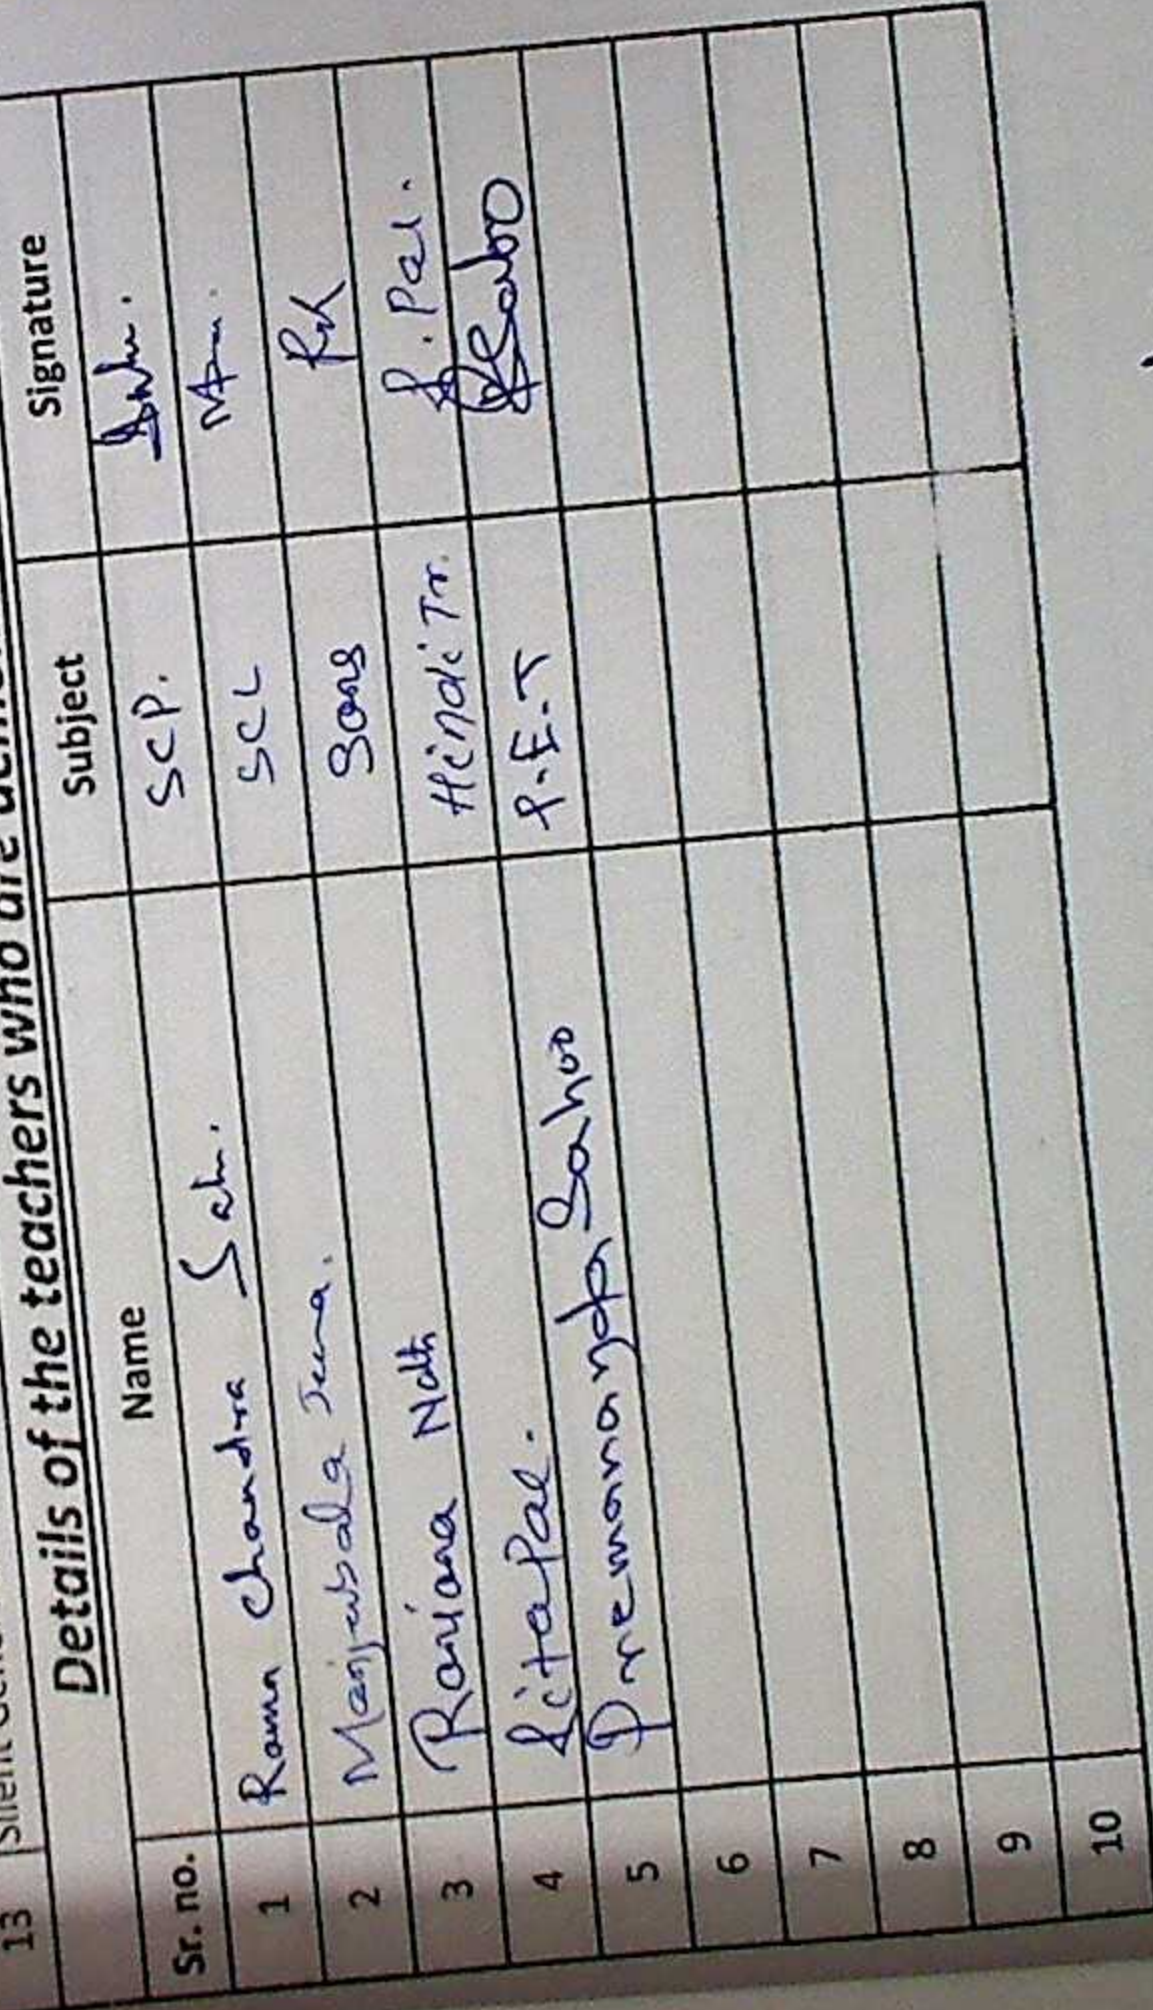 13
Details of the teachers who are
Sr. no. Name Subject Signature
1 Rama Chandra Sahu. SCP.
2 Manjubala Jena. SCL
3 Ranjana Nath Sans
4 Sita Pal. Hindi Tr. S. Pal.
5 Premananda Sahoo P.E.T Sahoo
6
7
8
9
10